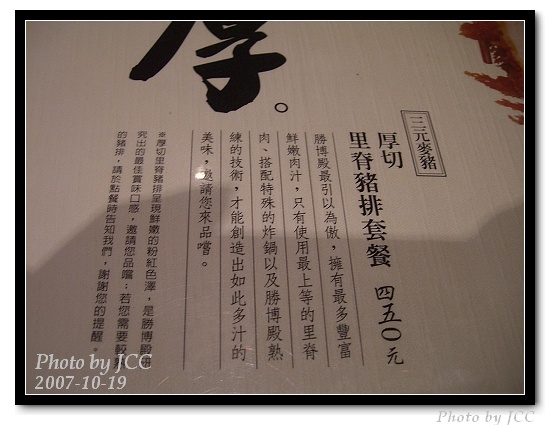 厚。
三元麥豬
厚切
里脊豬排套餐 四五〇元
勝博殿最引以為傲，擁有最多豐富
鮮嫩肉汁，只有使用最上等的里脊
肉、搭配特殊的炸鍋以及勝博殿熟
練的技術，才能創造出如此多汁的
美味，邀請您來品嚐。
※厚切里脊豬排呈現鮮嫩的粉紅色澤，是勝博殿研
究出的最佳賞味口感，邀請您品嚐；若您需要較熟
的豬排，請於點餐時告知我們，謝謝您的提醒。
Photo by JCC
2007-10-19
Photo by JCC